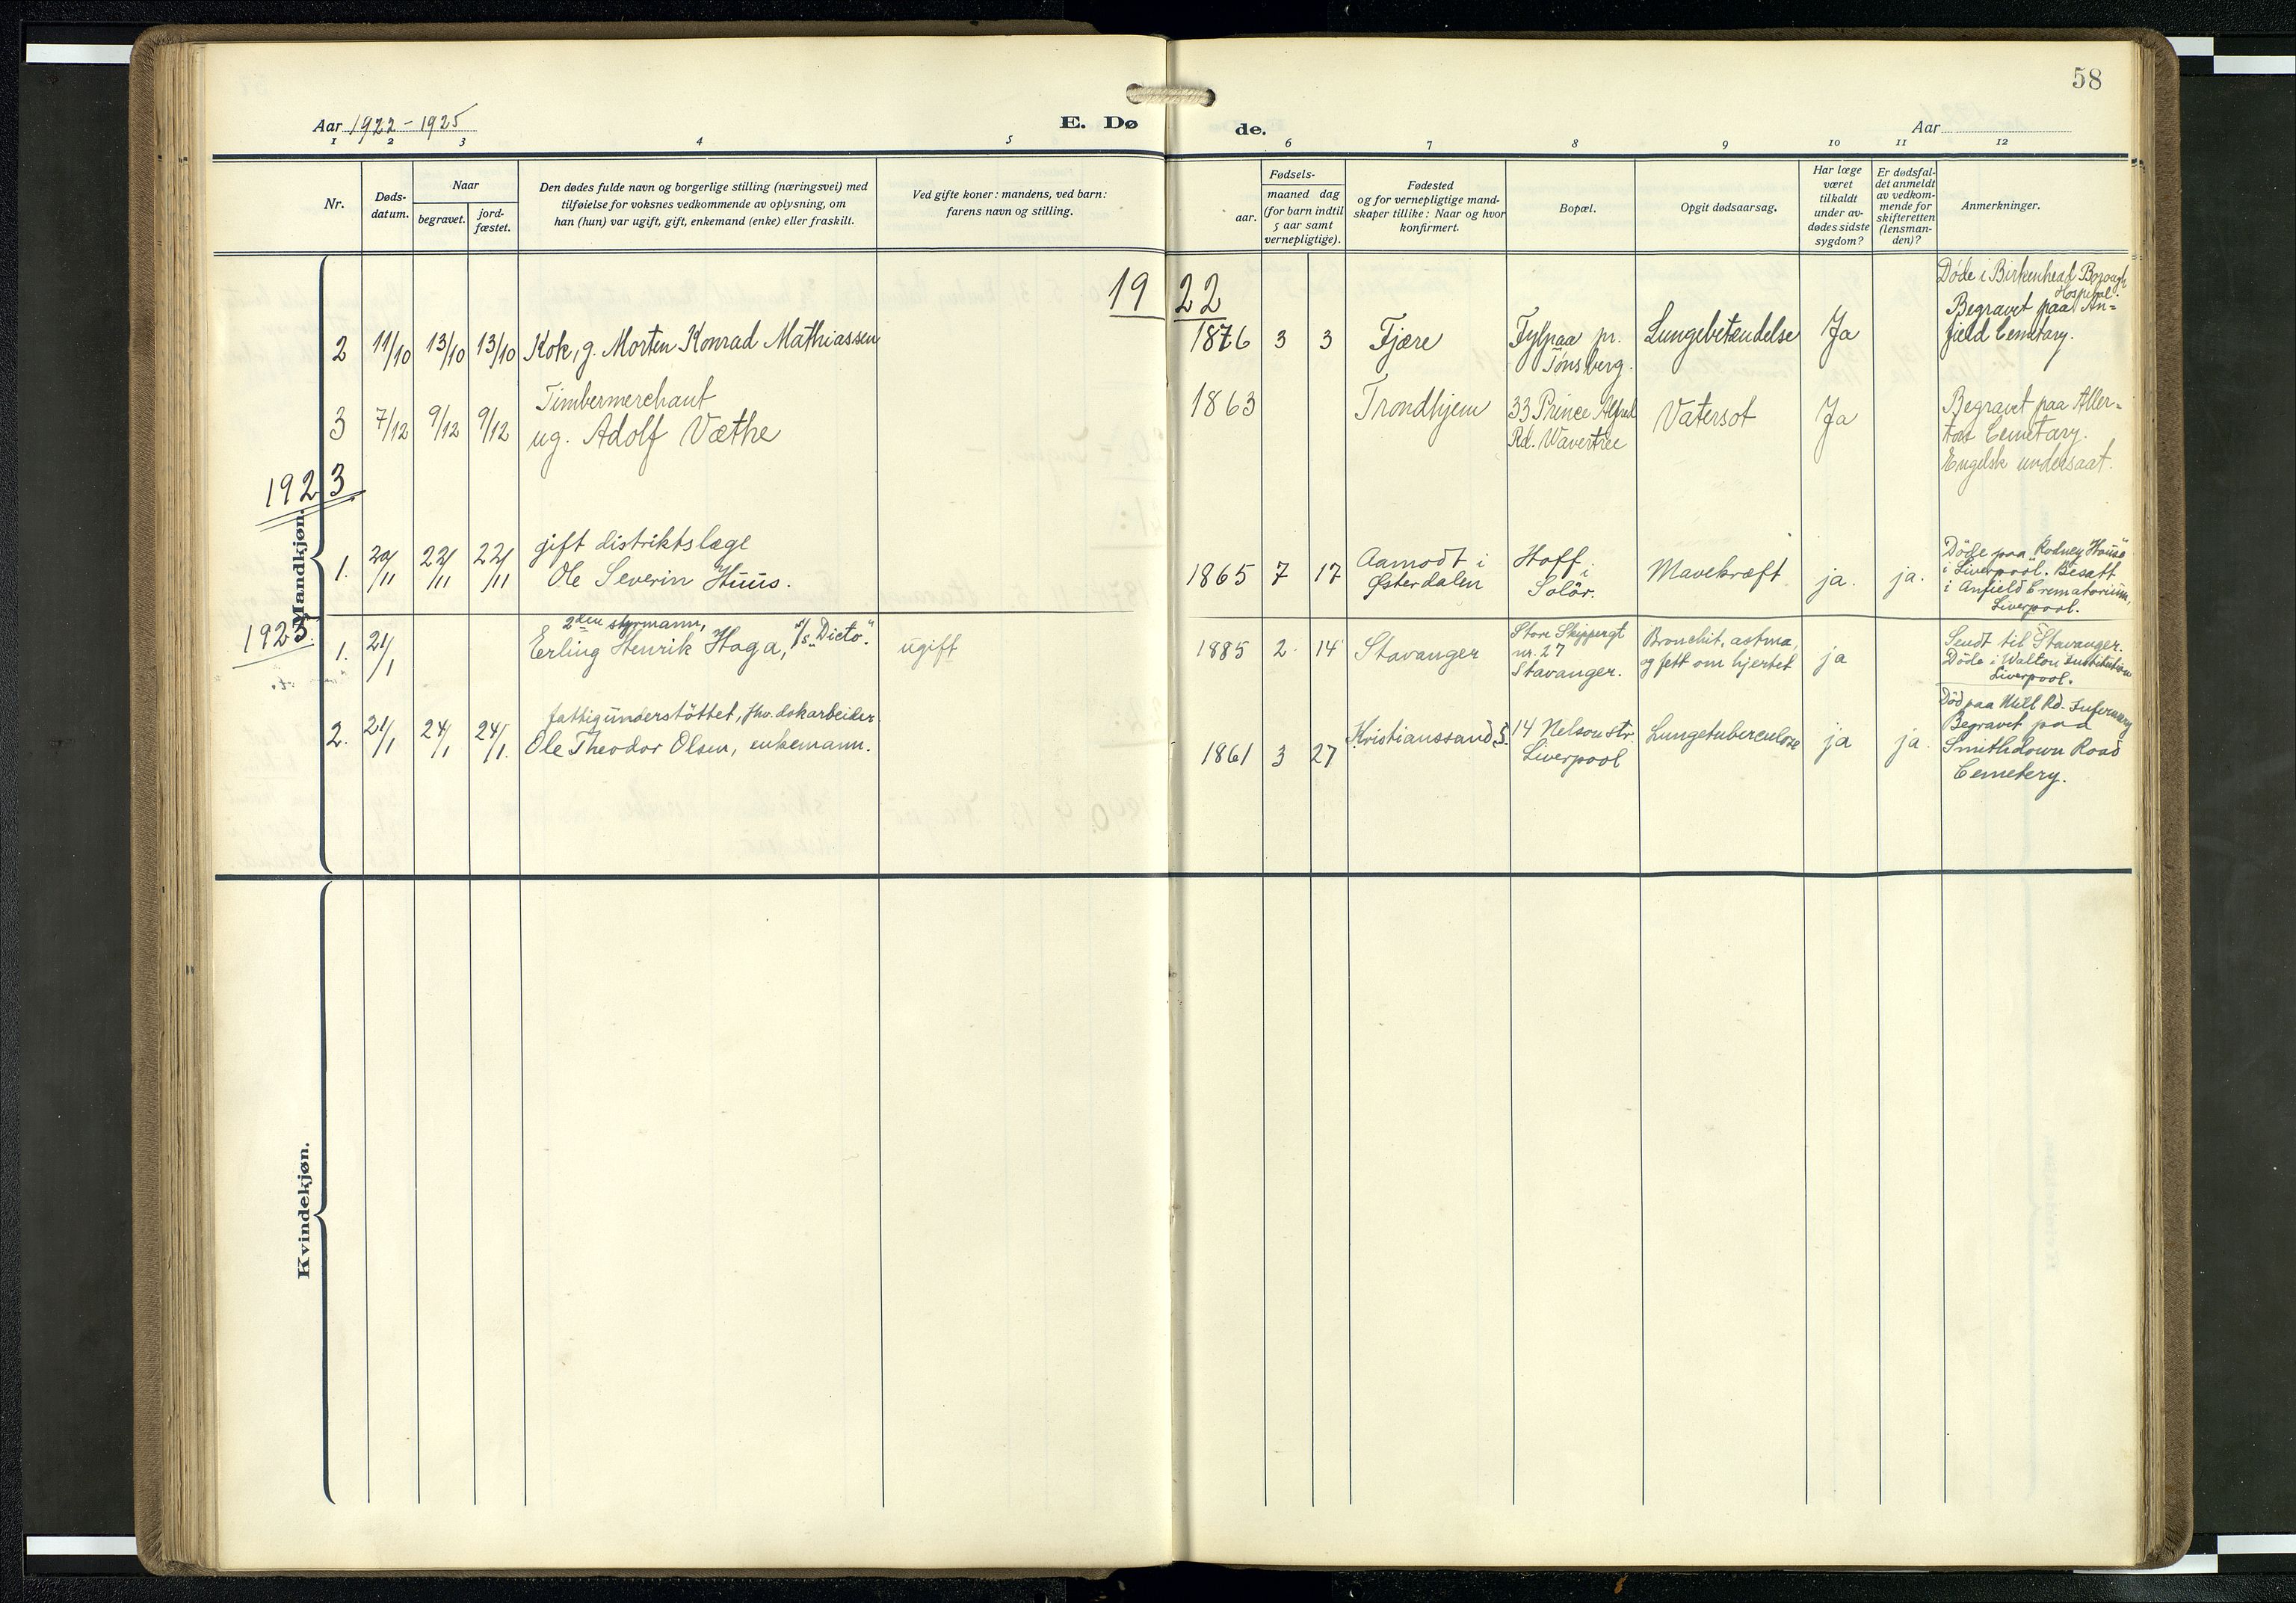 58
Aar 1922-1925
E. Dø de.
Aar
1 2 3 4 5 6 7 8 9 10 11 12
Nr.
Døds-
datum.
Naar
begravet.
jord-
fæstet.
Den dødes fulde navn og borgerlige stilling (næringsvei) med
tilføielse for voksnes vedkommende av oplysning, om
han (hun) var ugift, gift, enkemand (enke) eller fraskilt.
Ved gifte koner: mandens, ved barn:
farens navn og stilling.
Fødsels-
aar.
maaned dag
(for barn indtil
5 aar samt
vernepligtige).
Fødested
og for vernepligtige mand-
skaper tillike: Naar og hvor
konfirmert.
Bopæl.
Opgit dødsaarsag.
Har læge
været
tilkaldt
under av-
dødes sidste
sygdom?
Er dødsfal-
det anmeldt
av vedkom-
mende for
skifteretten
(lensman-
den)?
Anmerkninger.
Mandkjøn.
1922
2 11/10 13/10 13/10 Kok, g. Morten Konrad Mathiassen
1876 3 3 Fjære
pr.
Tönsberg.
Lungebetændelse
Ja
Döde i Birkenhead Borough
Hospital.
Begravet paa An-
field Cemetary.
3 7/12 9/12 9/12
Timbermerchant
ug. Adolf Væthe
1863
Trondhjem
33 Prince Alfred
Rd. Wavertree
Vatersot
Ja
Begravet paa Aller-
ton Cemetary.
Engelsk undersaat.
1923
1. 20/11 22/11 22/11
gift distriktslæge
Ole Severin Huus.
1865 7 17
Aamodt i
Østerdalen
Hoff i
Solör.
Mavekræft
ja. ja.
Döde paa "Rodney House"
i Liverpool. Besatt
i Anfield Crematorium,
Liverpool.
1925
1. 21/1
2den styrmann,
Erling Henrik Haga, s/s "Dicto."
ugift
1885 2 14 Stavanger
Store Skippergt
nr. 27
Stavanger.
Bronchit, astma,
og fett om hjertet
ja
Sendt til Stavanger.
Döde i Walton Institution
Liverpool.
2. 21/1 24/1 24/1.
fattigunderstöttet, fhv. dokarbeider.
Ole Theodor Olsen, enkemann.
1861 3 27 Kristianssand S.
14 Nelson str.
Liverpool
Lungetuberculose
ja ja.
Död paa Mill Rd. Infirmary
Begravet paa
Smithdown Road
Cemetery.
Kvindekjøn.